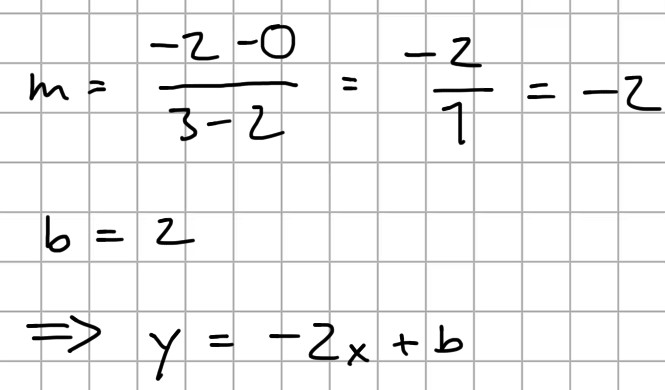 m = (-2 - 0)/(3 - 2) = -2/1 = -2
b = 2
⇒ y = -2x + b